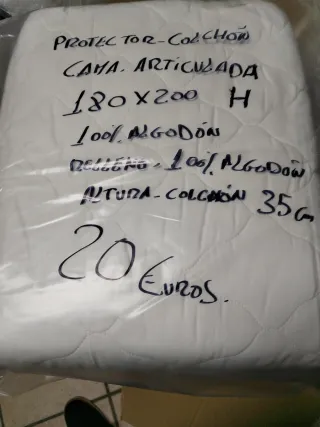 PROTECTOR-COLCHÓN
CAMA. ARTICULADA
180X200 H
100% ALGODÓN
RELLENO - 100% ALGODÓN
ALTURA-COLCHÓN 35cm
20 EUROS.